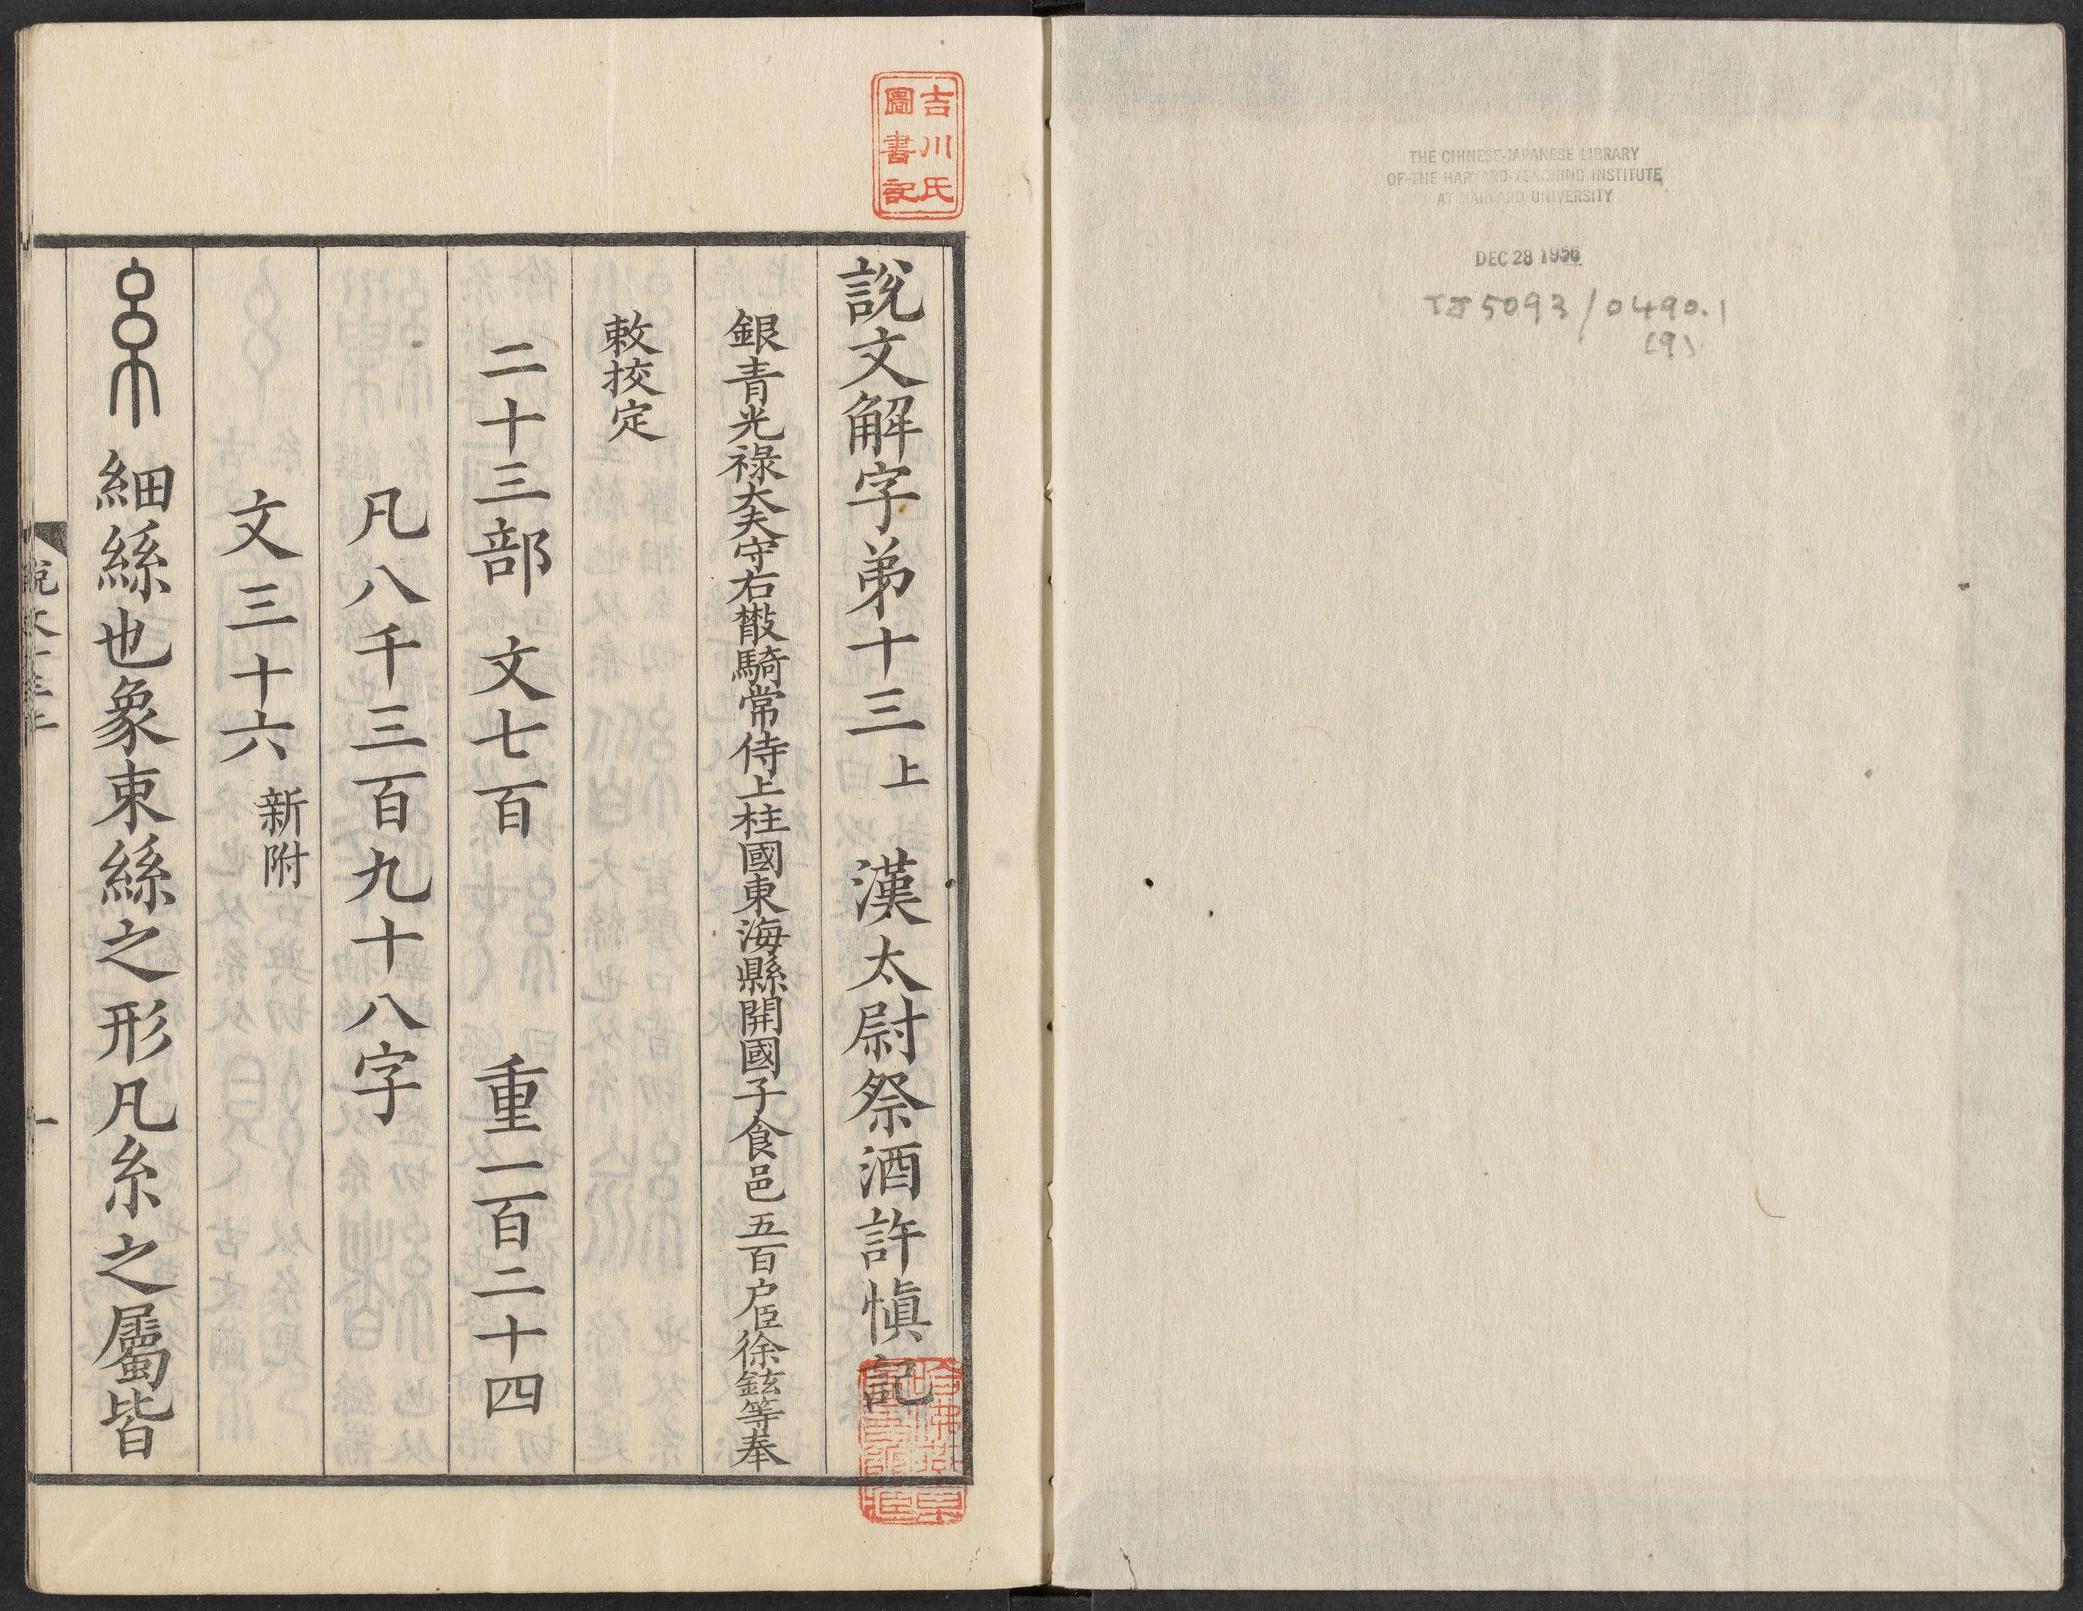 THE CHINESE-JAPANESE LIBRARY
OF THE HARVARD-YENCHING INSTITUTE
AT HARVARD UNIVERSITY
DEC 28 1956
TJ 5093/0490.1
(9)
吉川氏
圖書記
說文解字弟十三上 漢太尉祭酒許慎記
銀青光祿大夫守右散騎常侍上柱國東海縣開國子食邑五百户臣徐鉉等奉
敕挍定
二十三部 文七百 重一百二十四
凡八千三百九十八字
文三十六新附
糸細絲也象束絲之形凡糸之屬皆
說文十三上
一